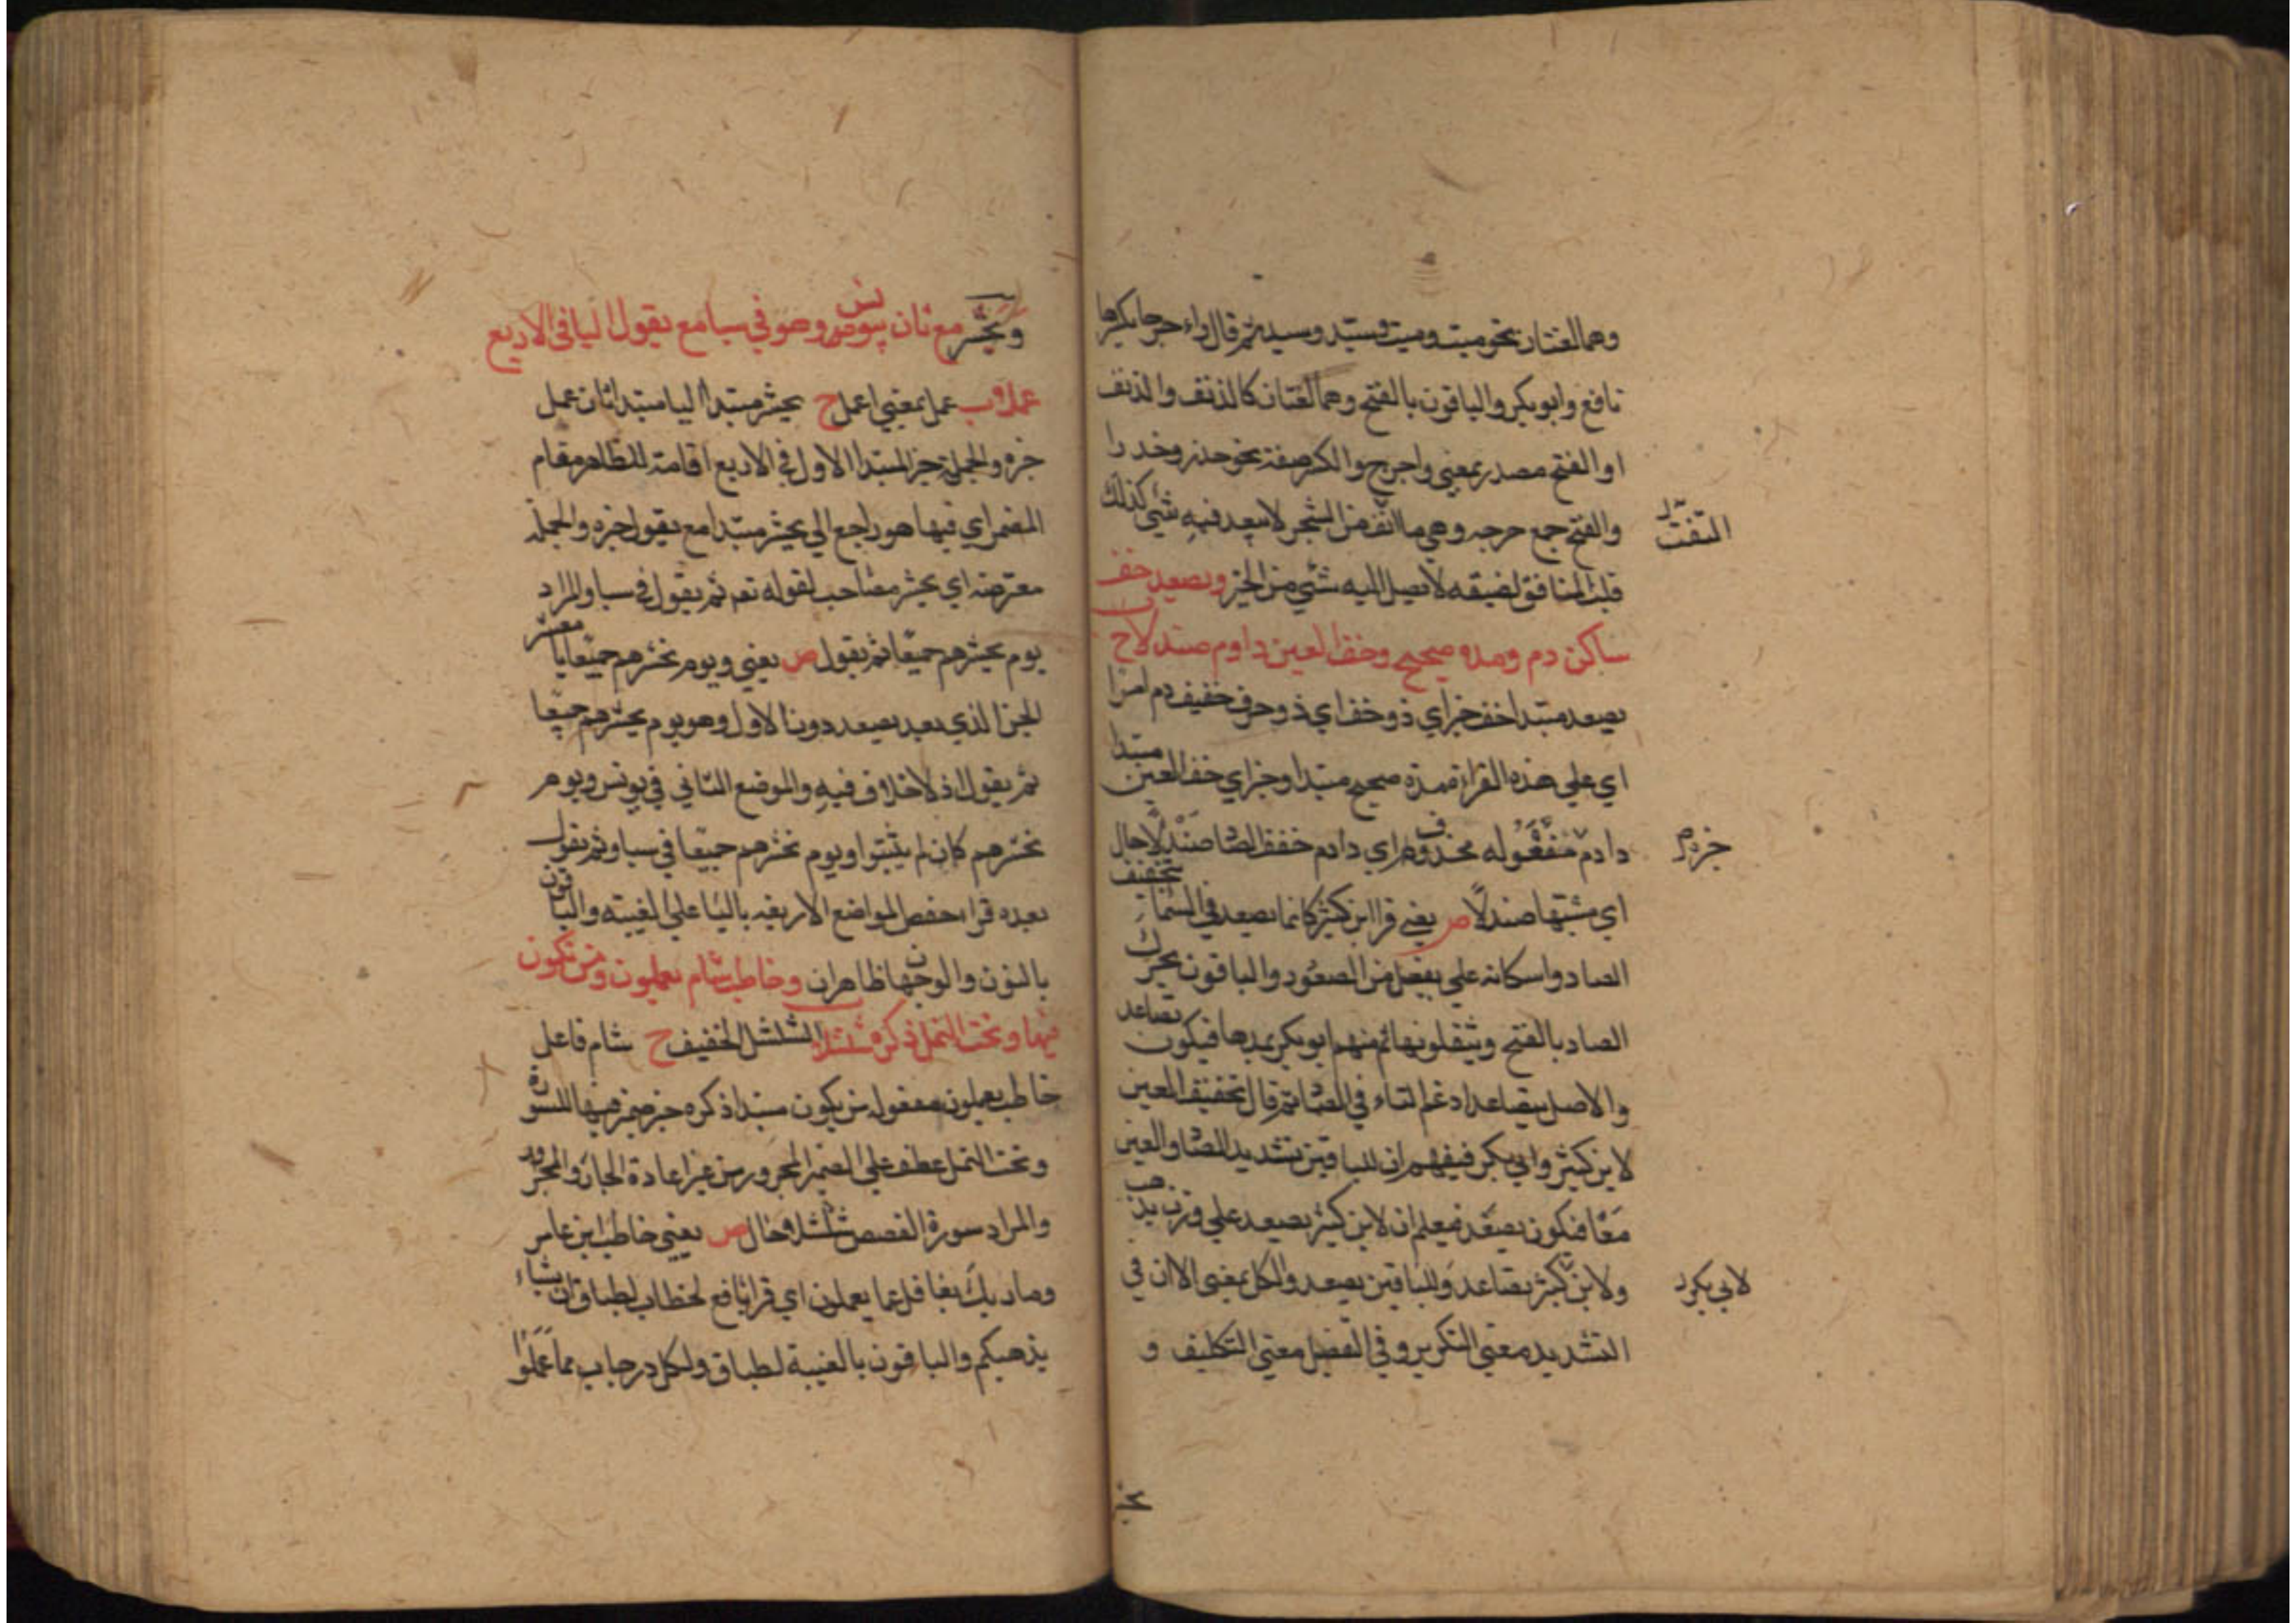 وهما لغتان نحو ميت وميت وسيد وسيد ثم قال راء حرجا بكسرها
نافع وابو بكر والباقون بالفتح وهما لغتان كالدنف والدنف
او الفتح مصدر بمعني واحرج والكسر صفة نحو حذر وخدرا
والفتح جمع حرجه وهي ما التف من الشجر لا يبعد فيه شيء كذلك
الملتفت
قلب المنافق لضيقه لا يصل اليه شيء من الخير ويصعد خف
ساكن دم ومده صحيح وخف العين داوم صندلا ح
يصعد مبتدا خف خبر اي ذو خف اي ذو حرف خفيف دم امرا
اي علي هذه القراة مده صحيح مبتدا وخبر اي خف العين مبتدا
داوم مفعوله محذوف اي داوم خفف الصاد صندلا حال
خبره
اي مشبها صندلا ص يعني قرا ابن كثير كانما يصعد في السماء بتخفيف
الصاد واسكانه علي يفعل من الصعود والباقون بحرك
الصاد بالفتح ويثقلونها ثم منهم ابو بكر يمدها فيكون يصاعد
والاصل يتصاعد ادغم التاء في الصاد ثم قال تخفيف العين
لابن كثير وابي بكر فيفهم ان للباقين تشديد الصاد والعين
معا فيكون يصعد فيعلم ان لابن كثير يصعد علي وزن يذهب
ولابن كثير يصاعد وللباقين يصعد والكل بمعني الا ان في
لابي بكر
التشديد معني التكرير وفي التفعل معني التكليف و
نحشر
ويحشر مع ثان بيونس وهو في سبا مع يقول اليا في الاربع
عملا ب عمل بمعني اعمل ح يحشر مبتدا اليا مبتدا ثان عمل
خبره والجملة خبر المبتدا الاول في الاربع اقامة للظاهر مقام
المضمر اي فيها هو راجع الي يحشر مبتدا مع يقول خبره والجملة
معترضه اي يحشر مصاحب لقوله تعه ثم يقول في سبا والمراد
يوم يحشرهم جميعا ثم يقول ص يعني ويوم نحشرهم جميعا يا معشر
الجن الذي بعد يصعد دون الاول وهو يوم يحشرهم جميعا
ثم يقول اذ لا خلاف فيه والموضع الثاني في يونس ويوم
نحشرهم كان لم يلبثوا ويوم نحشرهم جميعا في سبا وثم نقول
بعده قراء حفص المواضع الاربعه باليا علي الغيبة والباقون
بالنون والوجهان ظاهران وخاطب شام يعملون ومن تكون
فيها وتحت النمل ذكره شلشلا الشلشل الخفيف ح شام فاعل
خاطب يعملون مفعوله من يكون مبتدا ذكره خبر ضمير فيها للسورة
وتحت النمل عطف علي الضمير المجرور من غير اعادة الجار والمجرور
والمراد سورة القصص شلشلا حال ص يعني خاطب ابن عامر
وما ربك بغافل عما يعملون اي قرا نافع لخطاب لطباق ان يشاء
يذهبكم والباقون بالغيبة لطباق ولكل درجات مما عملوا